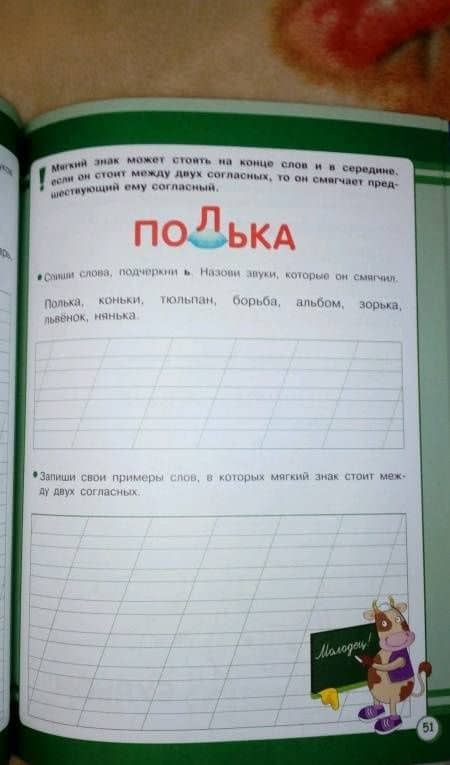 ! Мягкий знак может стоять на конце слов и в середине,
если он стоит между двух согласных, то он смягчает пред-
шествующий ему согласный.
ПОЛЬКА
• Спиши слова, подчеркни ь. Назови звуки, которые он смягчил.
Полька, коньки, тюльпан, борьба, альбом, зорька,
львёнок, нянька.
• Запиши свои примеры слов, в которых мягкий знак стоит меж-
ду двух согласных.
Молодец!
51